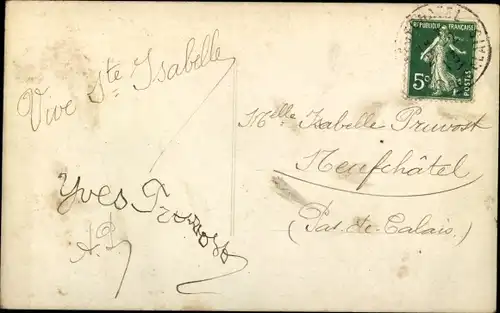 Vive Ste Isabelle
Yves Pruvost
A. P.
REPUBLIQUE FRANÇAISE
5c
POSTES
Melle Isabelle Pruvost
Neufchâtel
(Pas-de-Calais)